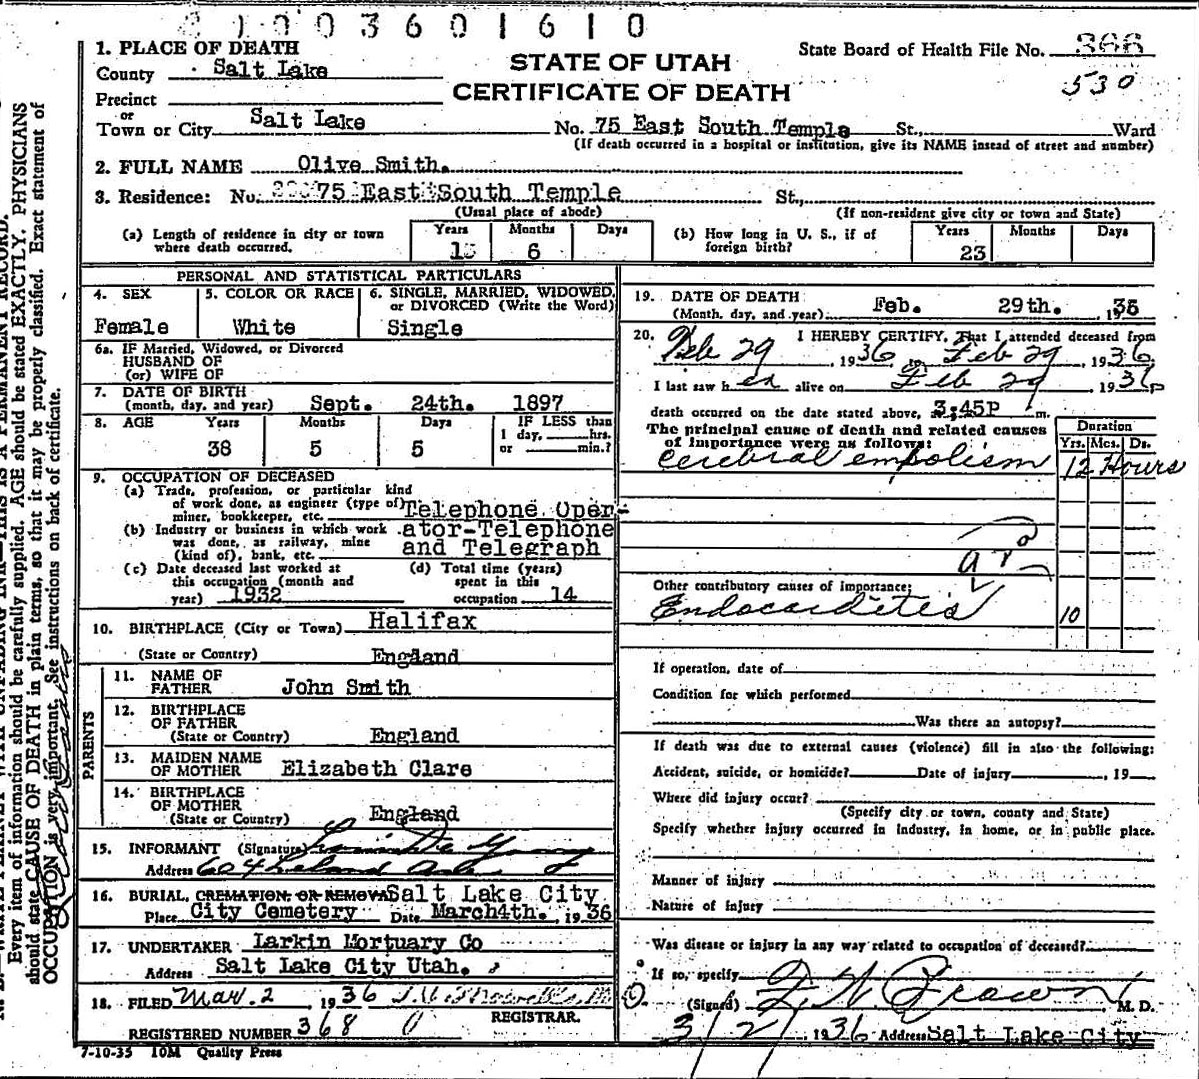 1003601610
1. PLACE OF DEATH
County Salt Lake
Precinct
or
Town or City Salt Lake
STATE OF UTAH
CERTIFICATE OF DEATH
State Board of Health File No. 366
530
No. 75 East South Temple St., Ward
(If death occurred in a hospital or institution, give its NAME instead of street and number)
2. FULL NAME Olive Smith.
3. Residence: No. 75 East South Temple St.,
(Usual place of abode)
(If non-resident give city or town and State)
(a) Length of residence in city or town
where death occurred.
Years Months Days
6
(b) How long in U. S., if of
foreign birth?
Years Months Days
23
PERSONAL AND STATISTICAL PARTICULARS
4. SEX
Female
5. COLOR OR RACE
White
6. SINGLE, MARRIED, WIDOWED,
or DIVORCED (Write the Word)
Single
6a. IF Married, Widowed, or Divorced
HUSBAND OF
(or) WIFE OF
7. DATE OF BIRTH
(month, day, and year) Sept. 24th. 1897
8. AGE Years Months Days IF LESS than
1 day, hrs.
or min.?
38 5 5
9. OCCUPATION OF DECEASED
(a) Trade, profession, or particular kind
of work done, as engineer (type of)
miner, bookkeeper, etc. Telephone Oper-
(b) Industry or business in which work
was done, as railway, mine
(kind of), bank, etc. ator-Telephone
and Telegraph
(c) Date deceased last worked at
this occupation (month and
year) 1932
(d) Total time (years)
spent in this
occupation 14
10. BIRTHPLACE (City or Town) Halifax
(State or Country) England
PARENTS
11. NAME OF
FATHER John Smith
12. BIRTHPLACE
OF FATHER
(State or Country) England
13. MAIDEN NAME
OF MOTHER Elizabeth Clare
14. BIRTHPLACE
OF MOTHER
(State or Country) England
15. INFORMANT (Signature)
Address 604 Leland Ave
16. BURIAL, CREMATION OR REMOVAL Salt Lake City
Place City Cemetery Date March 4th. 1936
17. UNDERTAKER Larkin Mortuary Co
Address Salt Lake City Utah.
18. FILED Mar. 2 1936
REGISTRAR.
REGISTERED NUMBER 368
7-10-35 10M Quality Press
19. DATE OF DEATH
(Month, day, and year) Feb. 29th. 1936
20. I HEREBY CERTIFY, That I attended deceased from
Feb 29, 1936 to Feb 29, 1936
I last saw her alive on Feb 29 1936
death occurred on the date stated above, 3:45P m.
The principal cause of death and related causes
of importance were as follows:
Duration
Yrs. Mos. Ds.
Cerebral embolism 12 Hours
Other contributory causes of importance:
Endocarditis 10
If operation, date of
Condition for which performed
Was there an autopsy?
If death was due to external causes (violence) fill in also the following:
Accident, suicide, or homicide? Date of injury , 19
Where did injury occur?
(Specify city or town, county and State)
Specify whether injury occurred in industry, in home, or in public place.
Manner of injury
Nature of injury
Was disease or injury in any way related to occupation of deceased?
If so, specify
(Signed) M. D.
3/2/ 1936 Address Salt Lake City
Every item of information should be carefully supplied. AGE should be stated EXACTLY. PHYSICIANS
should state CAUSE OF DEATH in plain terms, so that it may be properly classified. Exact statement of
OCCUPATION is very important. See instructions on back of certificate.